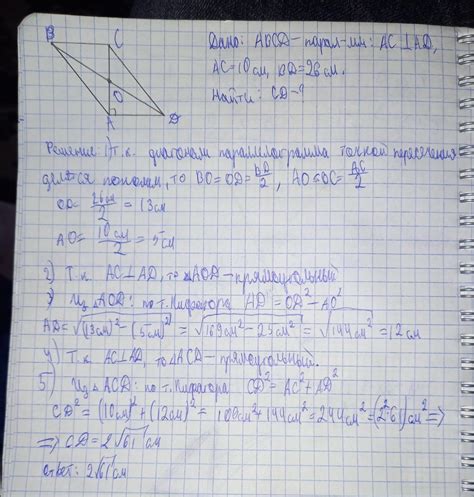 B
C
O
A
D
Дано: ABCD – парал-мм: AC⊥AD,
AC=10см, BD=26см.
Найти: CD-?
Решение: 1) Т.к. диагонали параллелограмма точкой пересечения
делятся пополам, то BO=OD=BD/2, AO=OC=AC/2
OD=26см/2=13см
AO=10см/2=5см
2) Т.к. AC⊥AD, то △AOD-прямоугольный
3) Из △AOD: по т.Пифагора AD²=OD²-AO²
AD=√(13см)²-(5см)²=√169см²-25см²=√144см²=12см
4) Т.к. AC⊥AD, то △ACD-прямоугольный.
5) Из △ACD: по т.Пифагора CD²=AC²+AD²
CD²=(10см)²+(12см)²=100см²+144см²=244см²=(2²·61)см²=>
=> CD=2√61см
Ответ: 2√61см